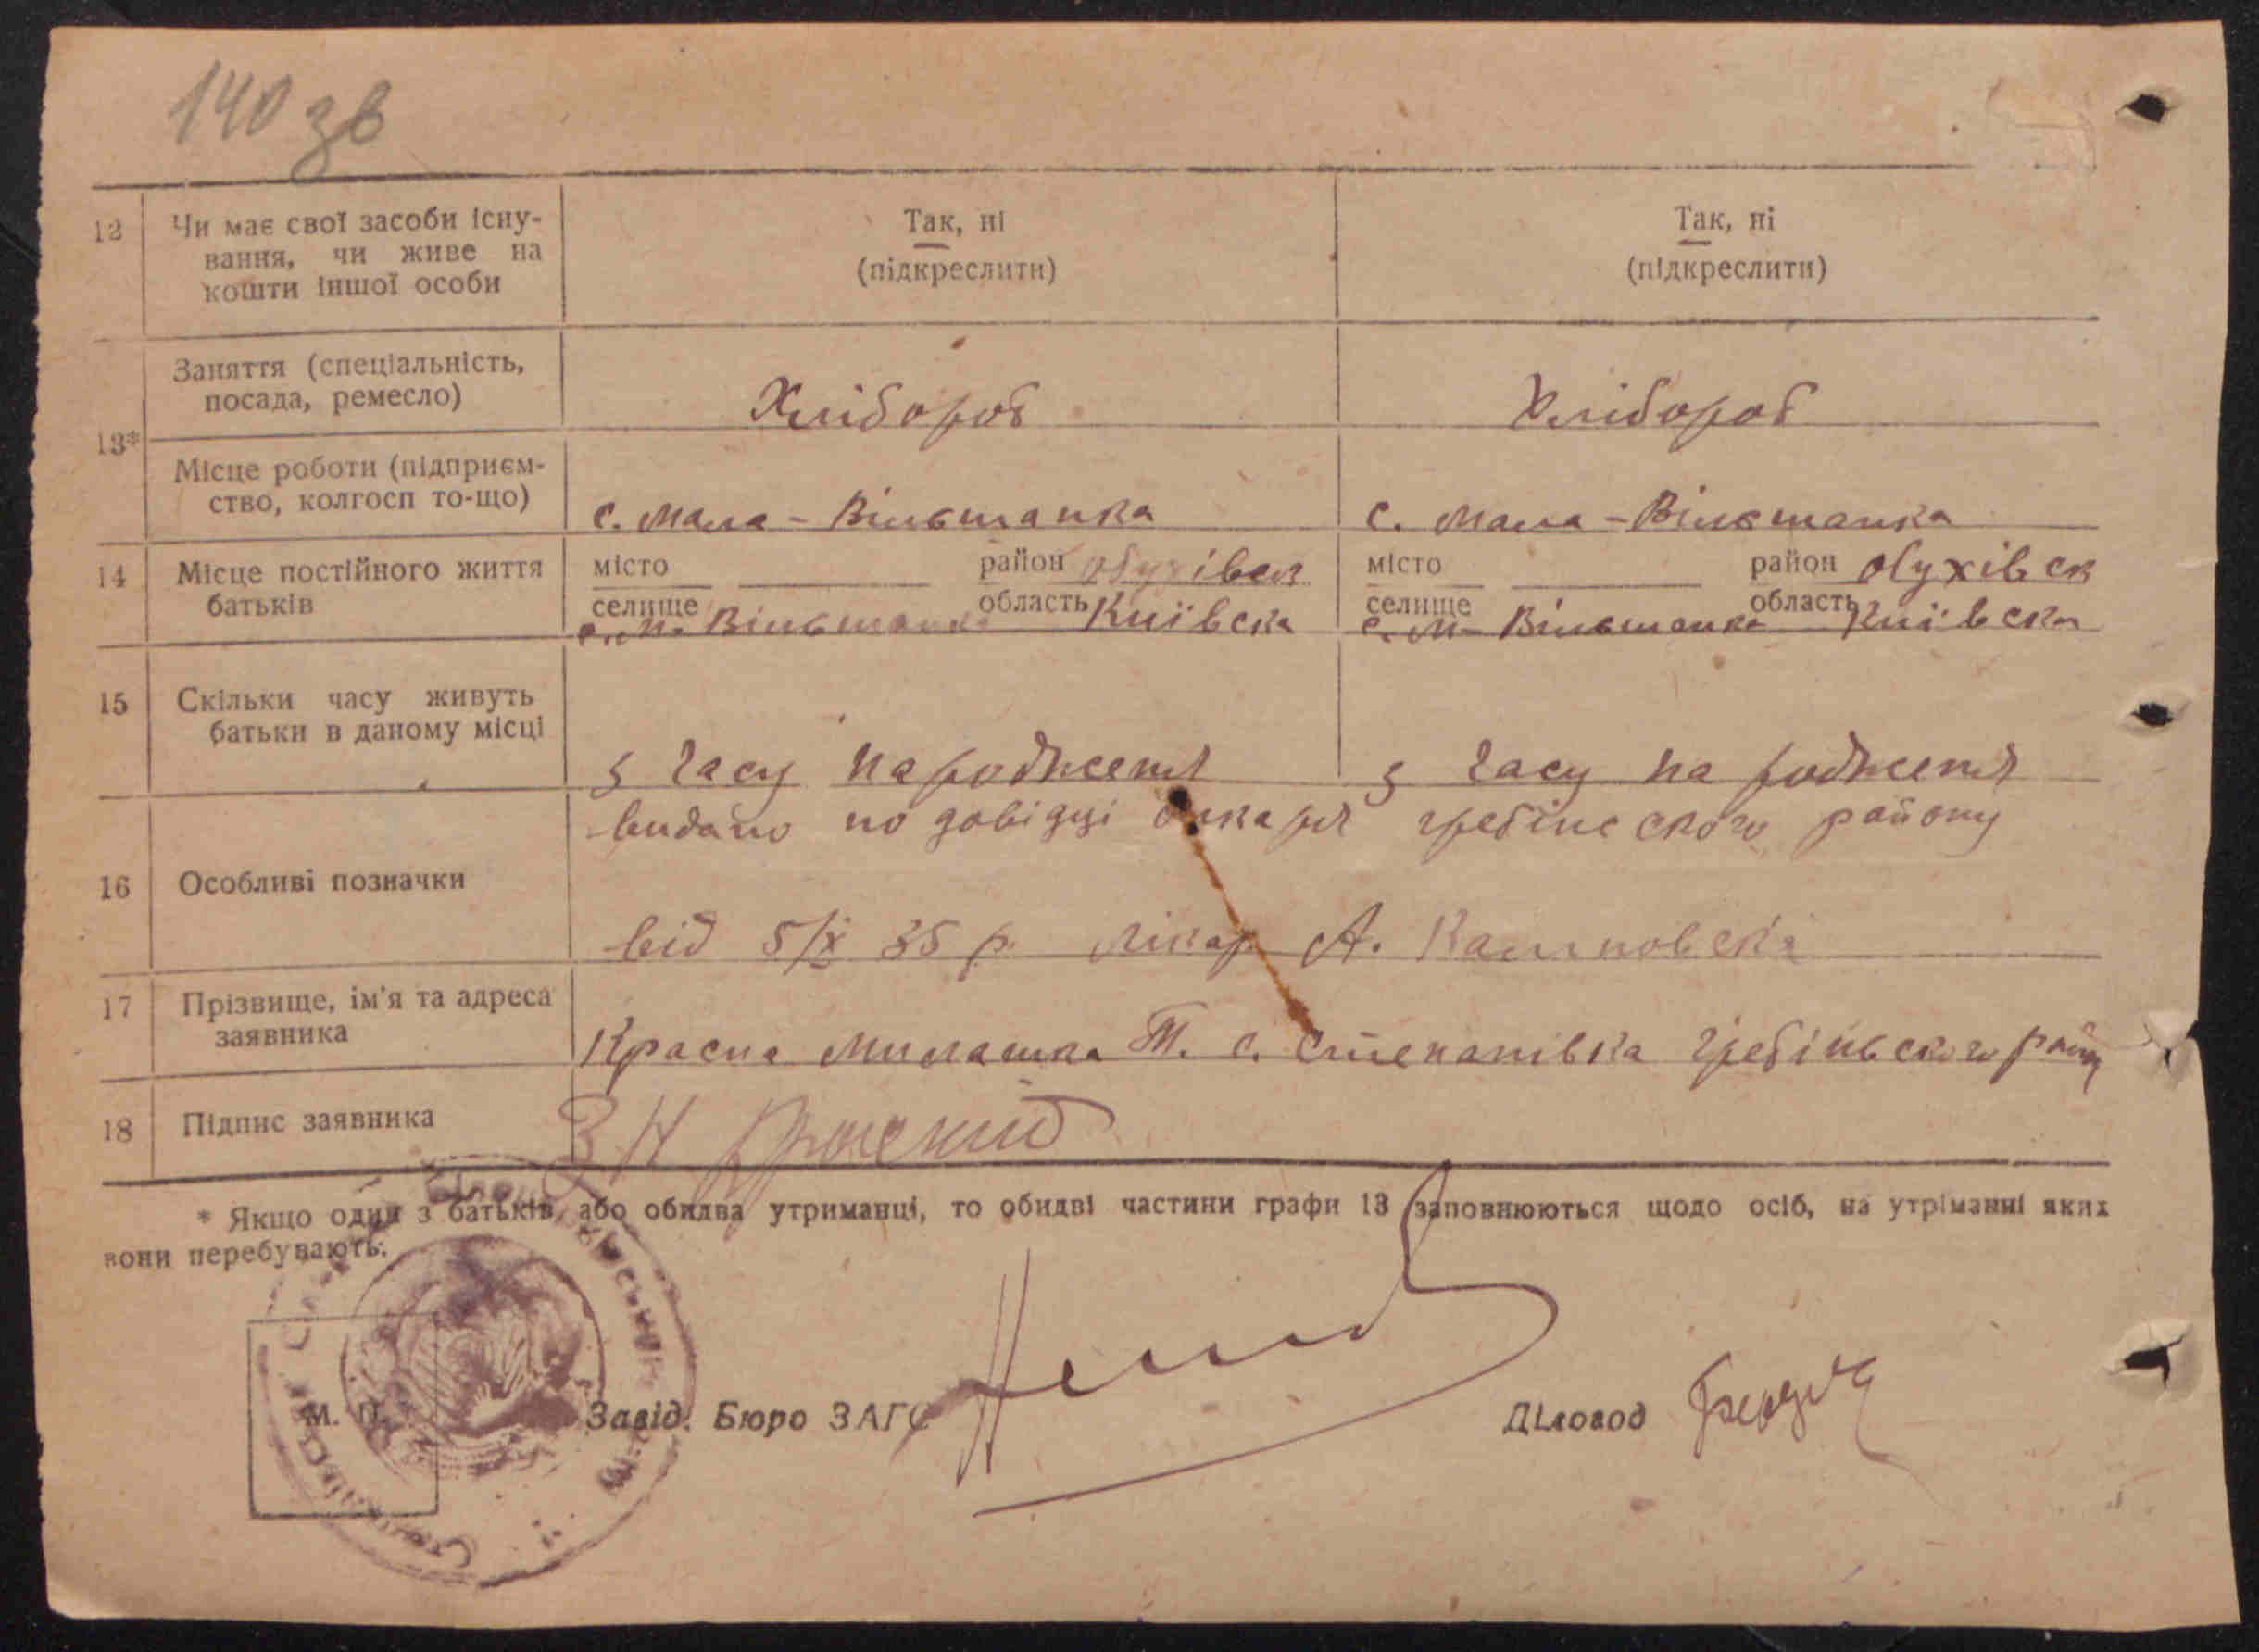 140 зв
12 Чи має свої засоби існу- Так, ні Так, ні
вання, чи живе на (підкреслити) (підкреслити)
кошти іншої особи
Заняття (спеціальність, Хлібороб Хлібороб
посада, ремесло)
13*
Місце роботи (підприєм-
ство, колгосп то-що) с. Мала-Вільшанка с. Мала-Вільшанка
14 Місце постійного життя місто район Обухівск місто район Обухівск
батьків селище с. М. Вільшанка область Київска селище с. М. Вільшанка область Київска
15 Скільки часу живуть
батьки в даному місці
з часу народження з часу народження
видано по довідці лікаря гребінского району
16 Особливі позначки
від 5/IX 35 р. лікар А.
17 Прізвище, ім'я та адреса
заявника Красна Милашка Т. с. Степанівка гребіньского району
18 Підпис заявника
* Якщо один з батьків, або обидва утриманці, то обидві частини графи 13 заповнюються щодо осіб, на утріманні яких
вони перебувають.
М. П. Завід. Бюро ЗАГС Діловод